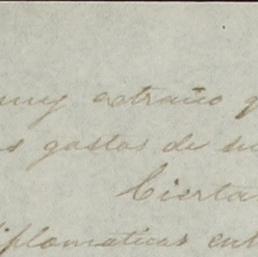 muy extraño q
s gastos de su
Cierta
diplomaticas ent